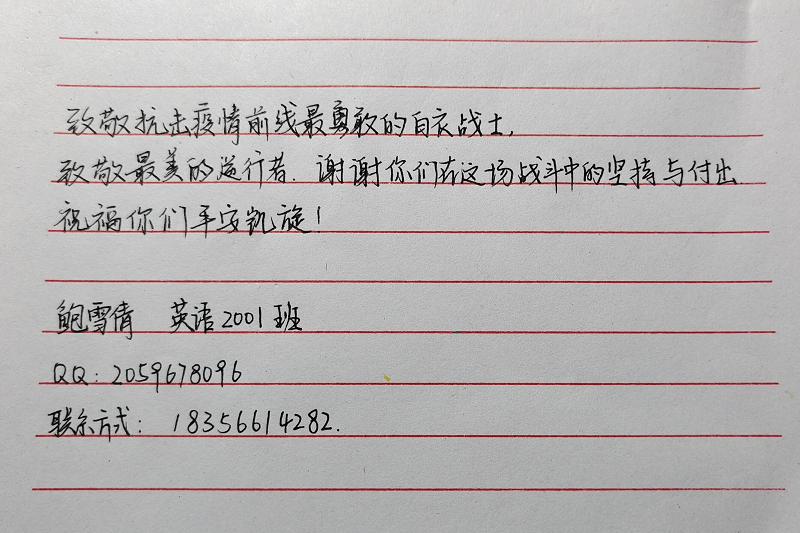 致敬抗击疫情前线最勇敢的白衣战士,
致敬最美的逆行者. 谢谢你们在这场战斗中的坚持与付出
祝福你们平安凯旋!
鲍雪倩 英语2001班
QQ: 2059678096
联系方式: 18356614282.